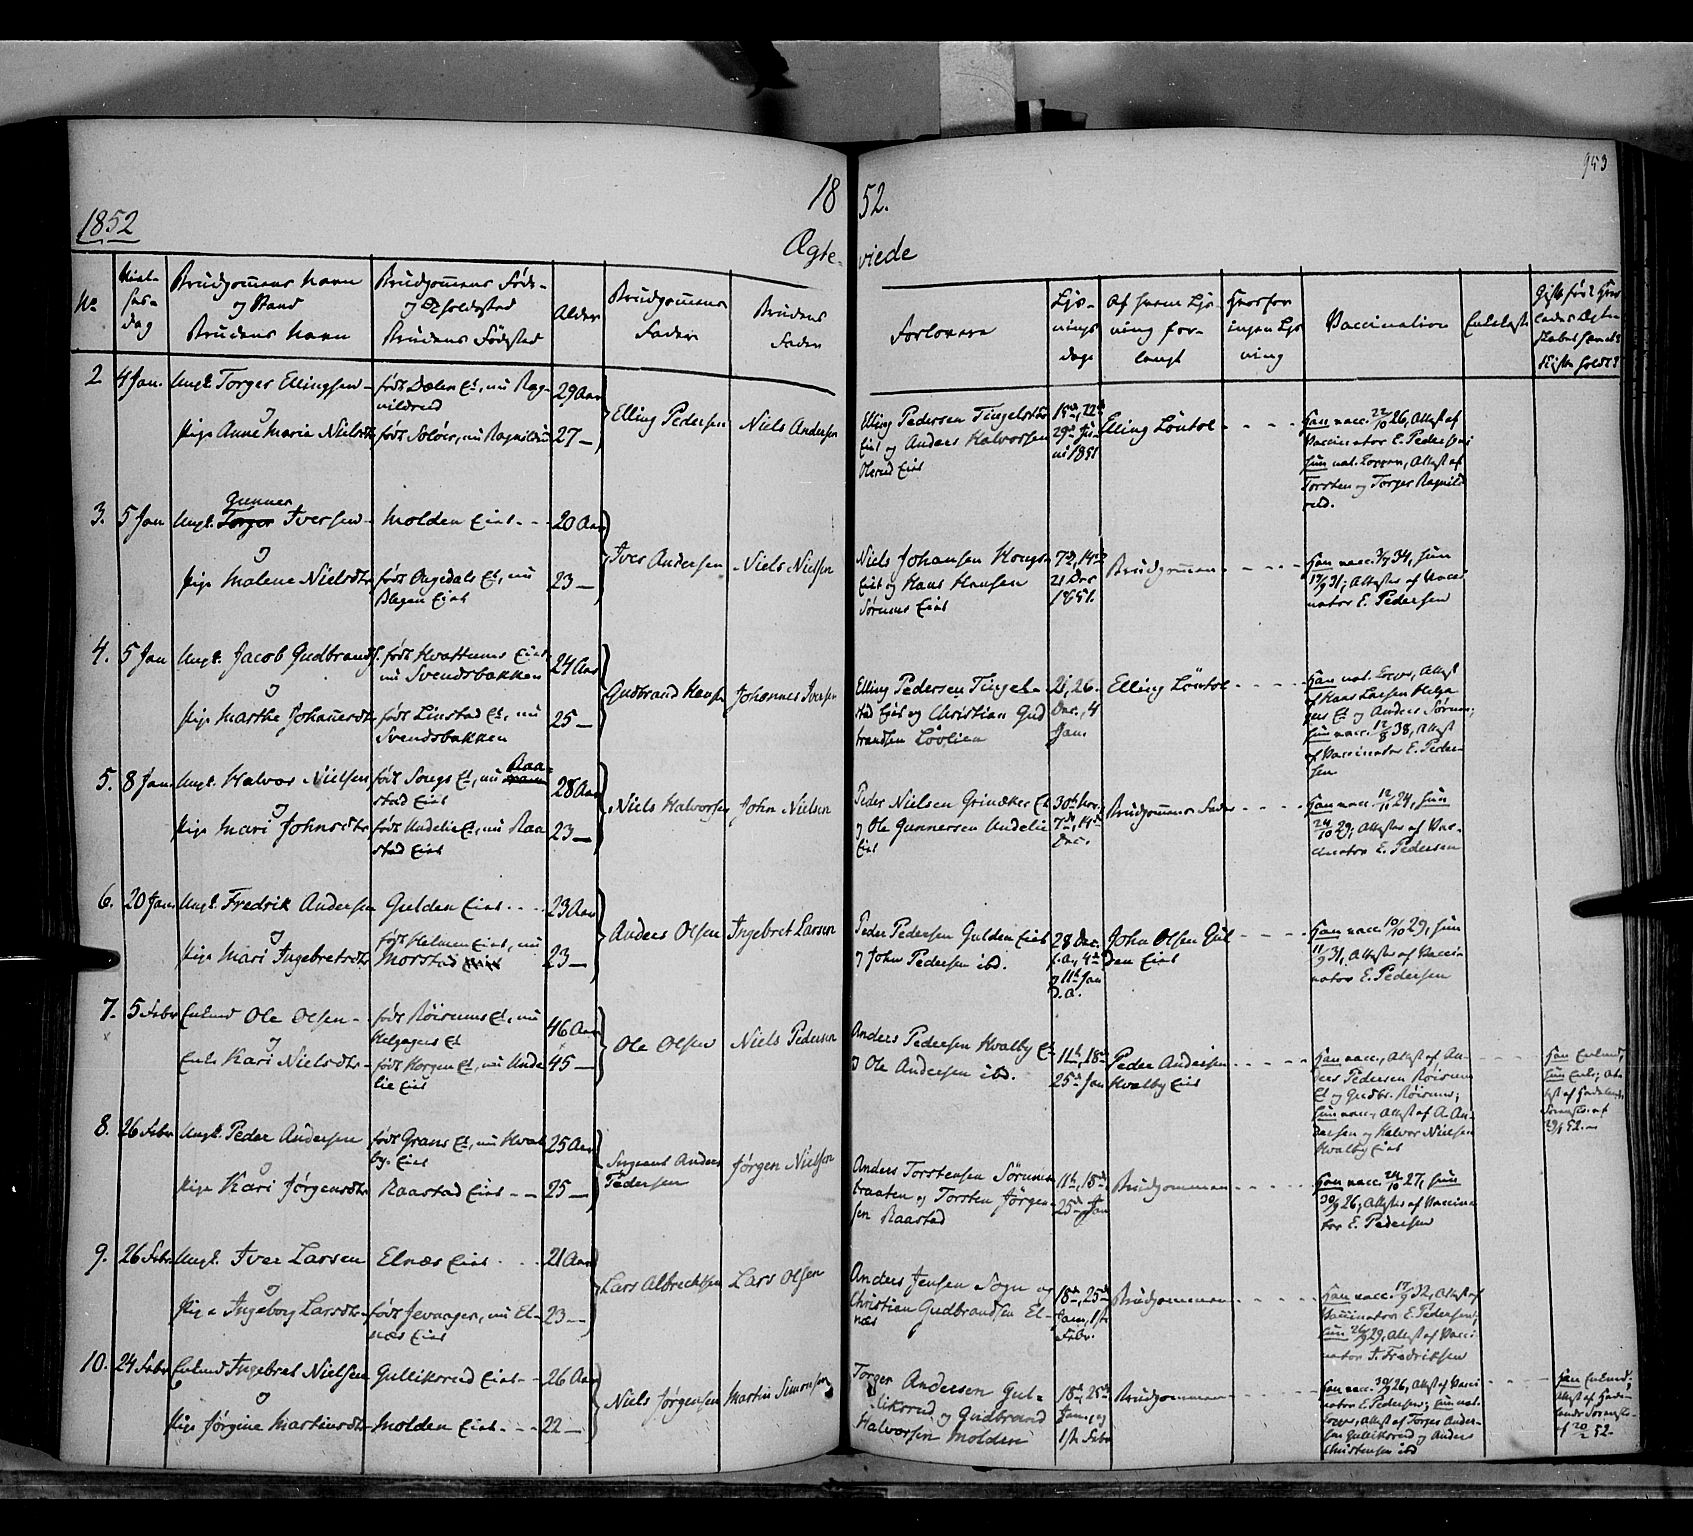 953
18 52.
1852
Ægte- viede
No
Viel-
ses-
dag
Brudgommens Navn
og Stand
Brudens Navn
Brudgommens Føde-
og Opholdssted
Brudens Fødested
Alder
Brudgommens
Fader
Brudens
Fader
Forlovere
Lys-
nings
dage
Af hvem Lys-
ning for-
langt
Hvorfor
ingen Lys
ning
Vaccination
2 4 Jan. Ungk. Torger Ellingsen
og
Pige Anne Marie Nielsdtr
født Dælen Et, nu Rag-
nildrud
født Soløer, nu Ragnildrud
29 Aar
27 —
Elling Pedersen
Niels Andersen
Elling Pedersen Tingelstad
Eiet og Anders Halvorsen
Olsrud Eiet
15de, 22de
29de Ju-
ni 1851
Elling Løntol
Han vacc. 22/10 26, Attest af
Vaccinator E. Pedersen;
Hun nat. Kopper, Attest af
Torsten og Torger Ragnild
rud.
3. 5 Jan Ungk. Gunner Iversen
og
Pige Malene Nielsdtr
Molden Eiet
født Ongedals Et, nu
Blegen Eiet
20 Aar
23 —
Iver Andersen
Niels Nielsen
Niels Johansen Kongs-
Eiet og Hans Hansen
Sørums Eiet
7de, 14de
21 Dec
1851.
Brudgommen
Han vacc. 3/7 34, Hun
17/9 31, Attester af Vacci
nator E. Pedersen
4. 5 Jan Ungk. Jacob Gudbrands.
og
Pige Marthe Johannesdtr
født Hvattums Eiet
nu Svendsbakken
født Linstad Et, nu
Svendsbakken
24 Aar
25 —
Gudbrand Hansen
Johannes Iversen
Elling Pedersen Tingel-
stad Eiet og Christian Gud
brandsen Lovlien
21, 26.
Dec., 4
Jan.
Elling Løntol
Han nat. Kopper, Attest
af Hans Larsen Helga
gers Et og Anders Sørum;
Hun vacc. 12/8 38, Attest
af Vaccinator E. Peder-
sen
5. 8 Jan. Ungk. Halvor Nielsen
og
Pige Mari Johnsdtr
født Songs Et, nu Raa-
stad Eiet
født Undelie Et, nu Raa
stad Eiet
28 Aar
23 —
Niels Halvorsen
John Nielsen
Peder Nielsen Grinaker Et
og Ole Gunnersen Undelie
Eiet
30te Nov.
7de, 14de
Dec.
Brudgommens Fader
Han vacc. 12/11 24, Hun
24/10 29; Attester af Vac-
cinator E. Pedersen
6. 20 Jan. Ungk. Fredrik Andersen
og
Pige Mari Ingebretsdtr
Gulden Eiet
født Helmen Eiet, nu
Morstad
23 Aar
23 —
Anders Olsen
Ingebret Larsen
Peder Pedersen Gulden Eiet
og John Pedersen ibd.
28 Dec.
f.A., 4de
og 11te Jan
d.A.
John Olsen Gul
den Eiet
Han vacc. 10/10 29, Hun
11/9 31, Attester af Vacci-
nator E. Pedersen
7. 5 Febr Enkmd Ole Olsen
og
Enke Kari Nielsdtr
født Røisums Et, nu
Helgagers Et
født Horgen Et, nu Unde
lie Eiet
46 Aar
45 —
Ole Olsen
Niels Pedersen
Anders Pedersen Hvalby Et
og Ole Andersen ibd.
11te, 18de
25de Jan
Peder Andersen
Hvalby Eiet
Han vacc., Attest af An-
ders Pedersen Røisum
Et og Gudbr. Røisum;
Hun vacc., Attest af A. An-
dersen og Halvor Nielsen
Hvalby Eiet
Han Enkmd,
Hun Enke; At-
test af Hadelands
8. 26 Febr Ungk. Peder Andersen
og
Pige Kari Jørgensdtr
født Grans Et, nu Hval
by Eiet
Raastad Eiet
25 Aar
25 —
Sergeant Anders
Pedersen
Jørgen Nielsen
Anders Torstensen Sørum-
braaten og Torsten Jørgen-
sen Raastad
11te, 18de
25de Jan
Brudgommen
Han vacc. 24/10 27, Hun
30/9 26, Attester af Vaccina
tor E. Pedersen
9. 26 Febr Ungk. Iver Larsen
og
Pige Ingeborg Larsdtr
Elnæs Eiet
født Jevanger, nu El-
næs Eiet
21 Aar
23 —
Lars Albrechtsen
Lars Olsen
Anders Jensen Sogn og
Christian Gudbrandsen El-
næs
18de, 25de
Jan., 1ste
Febr.
Brudgommen
Han vacc. 17/9 32, Attest af
Vaccinator E. Pedersen;
Hun 26/9 29, Attest af Vacci
nator J. Fredriksen
10. 24 Febr Enkmd Ingebret Nielsen
og
Pige Jørgine Martinsdtr
Gulliksrud Eiet
Molden Eiet
26 Aar
22 —
Niels Jørgensen
Martin Simonsen
Torger Andersen Gul-
liksrud og Gudbrand
Halvorsen Molden
18de, 25de
Jan., og
1ste Febr
Brudgommen
Han vacc. 30/9 26, Attest af Vacci
nator E. Pedersen; Hun nat.
Kopper, Attest af Torger Ander-
sen Gulliksrud og Anders
Christensen ibd
Han Enkmd;
Attest af Hade-